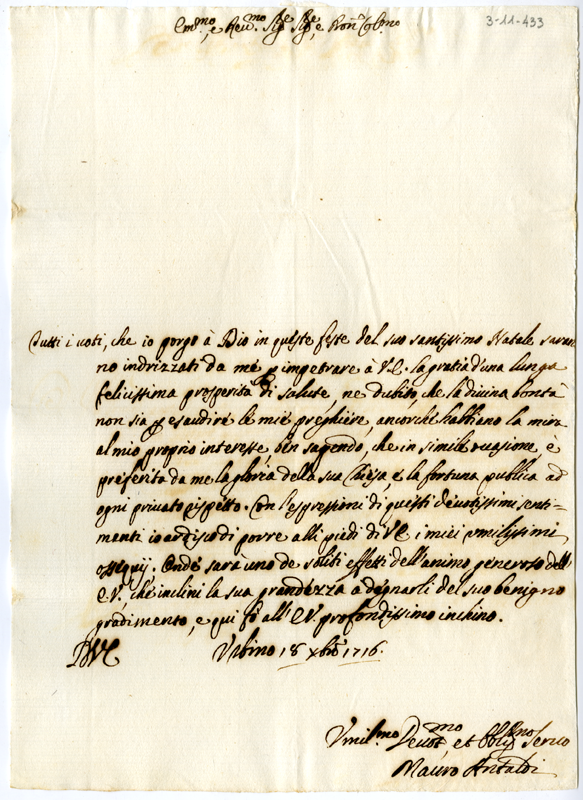 3-11-433
Em.mo, e Reu.mo Sig.re Sig.re, e Pron. Col.mo
Tutti i uoti, che io porgo à Dio in queste feste del suo santissimo Natale saran
no indrizzati da me p impetrare à V.E. la gratia d'una lunga
felicissima prosperità di salute, ne dubito, che la diuina bontà
non sia p esaudire le mie preghiere, ancorche habbiano la mira
al mio proprio interesse, ben sapendo, che in simile occasione, è
preferito da me la gloria della sua Chiesa, e la fortuna publica ad
ogni priuato rispetto. Con l'espressioni di questi deuotissimi senti=
menti io ardisco di porre alli piedi di VE i miei umilissimi
ossequij. Onde sarà uno de soliti effetti dell'animo generoso dell'
E.V., che inclini la sua grandezza a degnarli del suo benigno
gradimento, e qui fò all'E.V. profondissimo inchino.
DVE Vrbino 18 Xbre 1716.
Vmil.mo Deuot.mo, et Obblig.mo Seruo
Mauro Antaldi